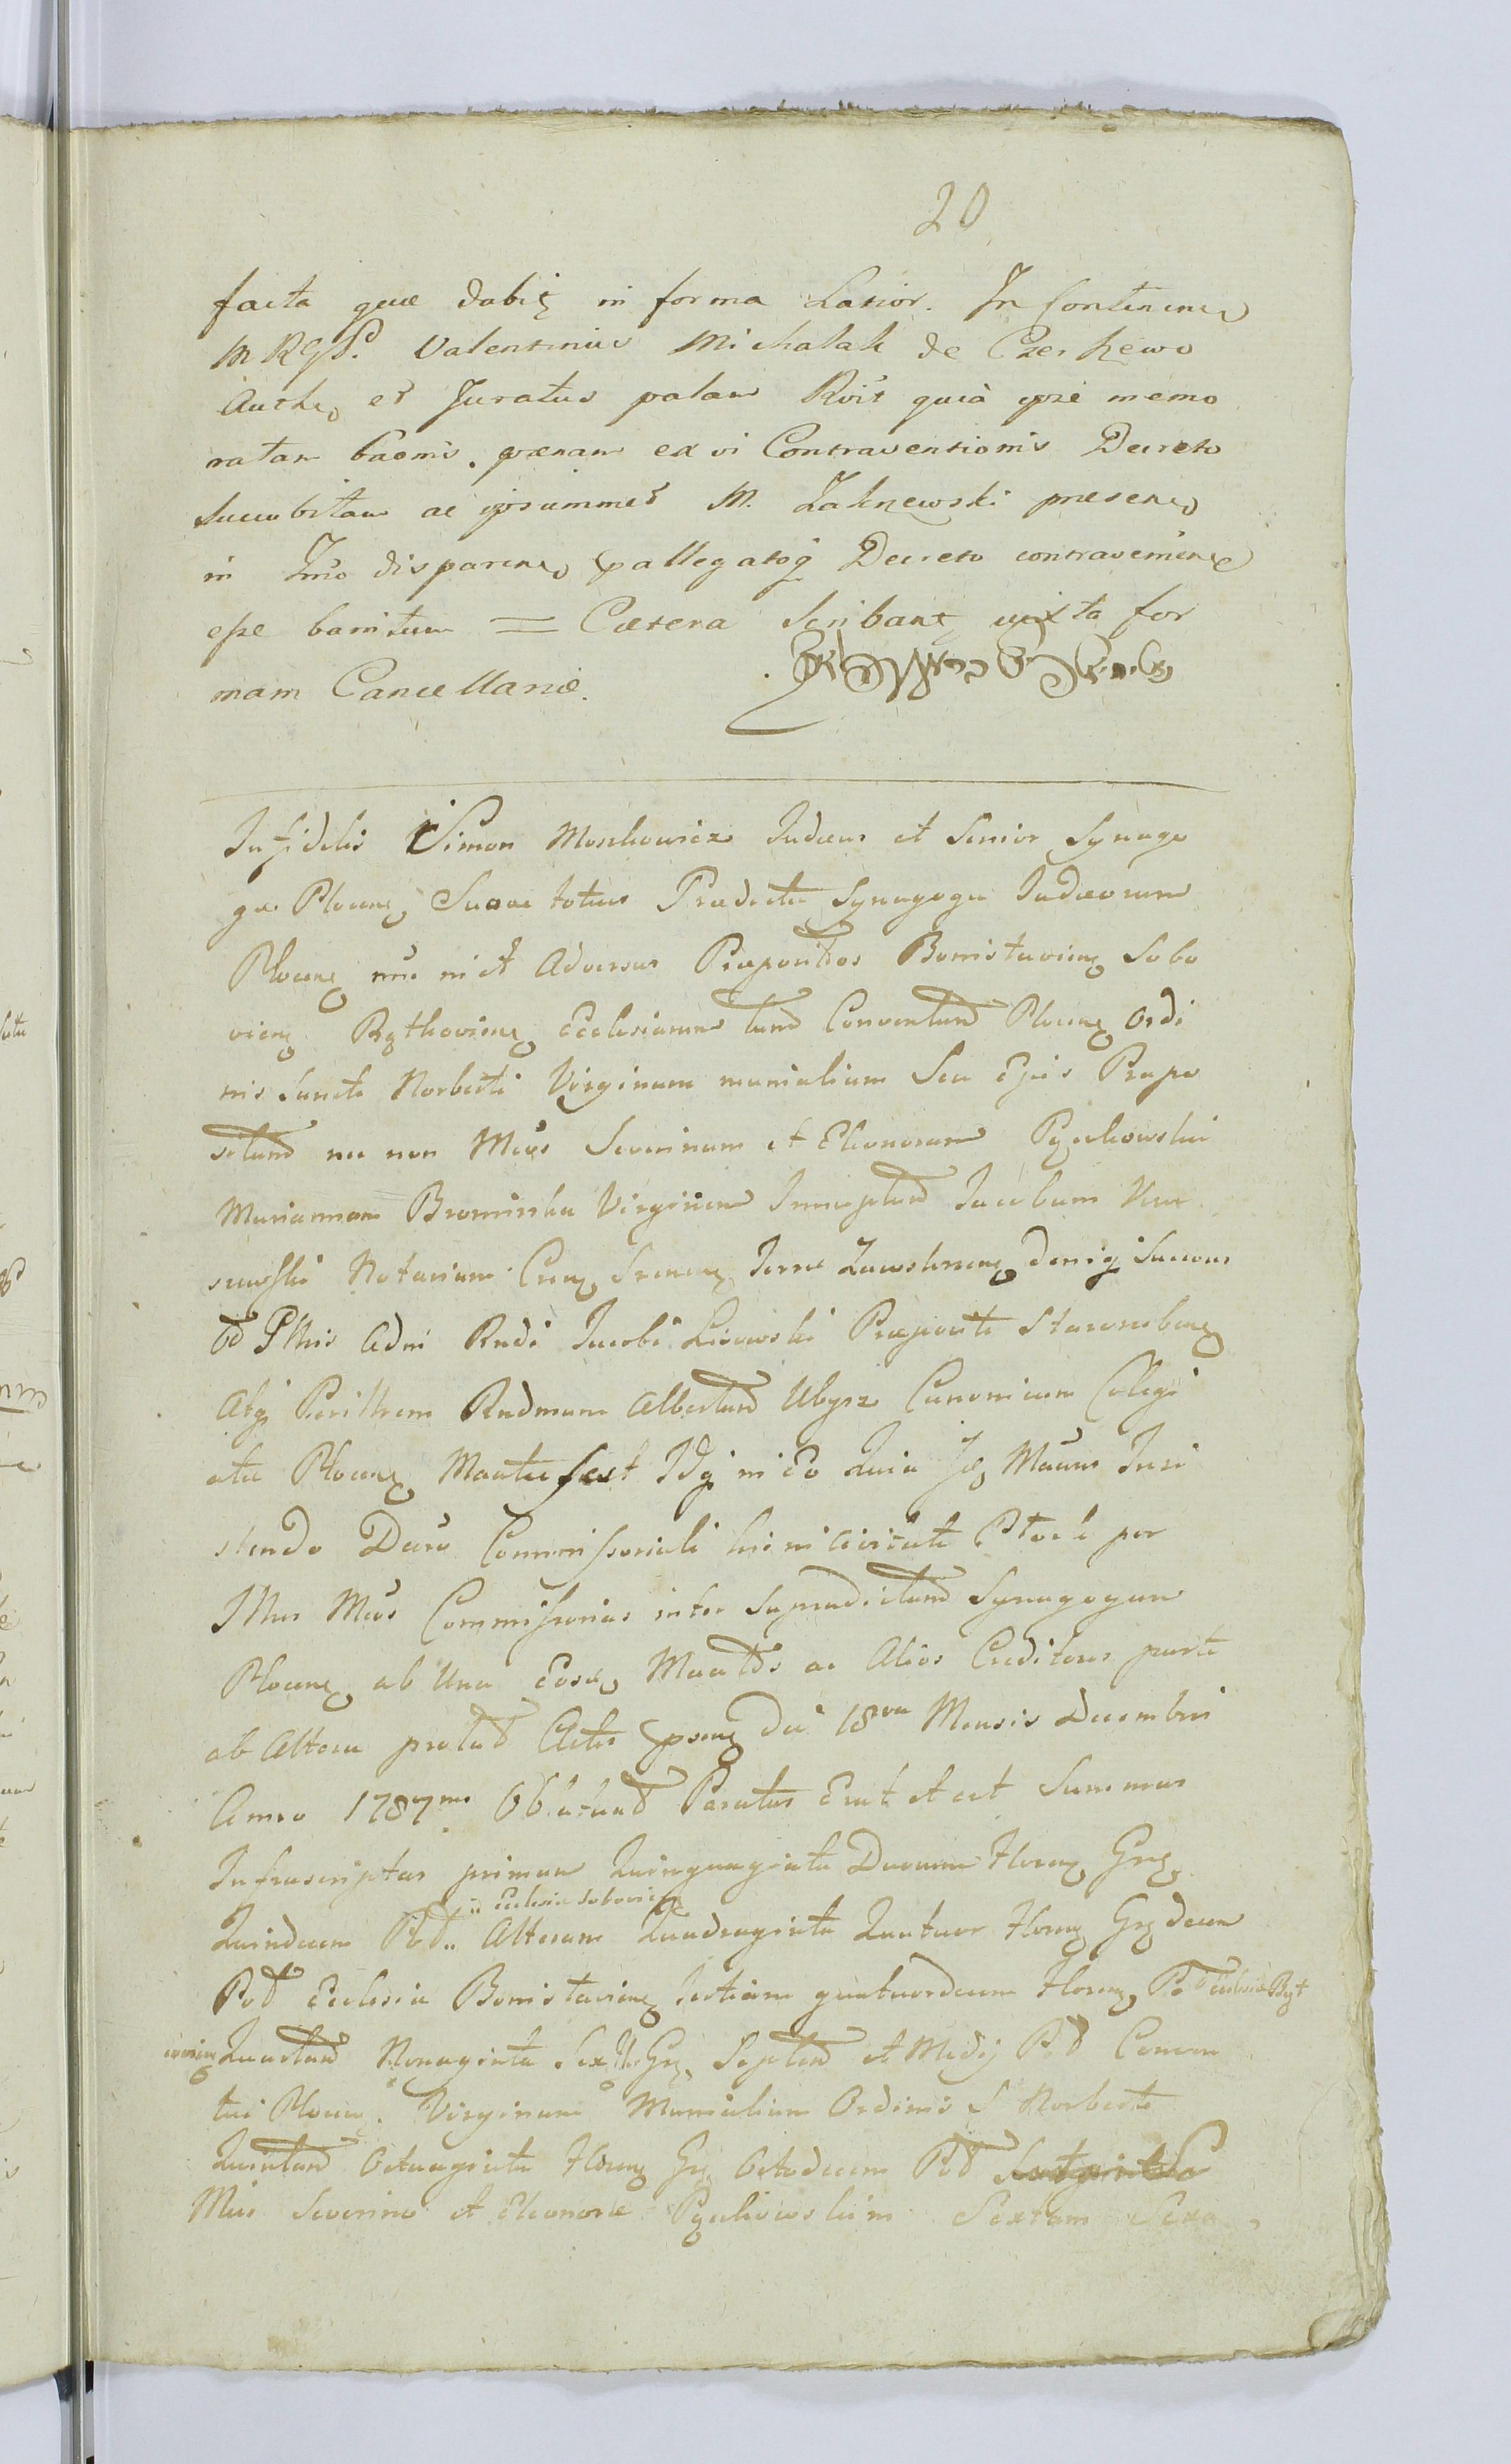 20
facta quæ dabit in forma Latior. In continenti
M RGSP. Valentinus Michalak de Czerkewo
Auth. et Juratus palam Rcit quià ipse memo
ratam baonis. pænam ex vi Contraventionis Decreto
Succubitam ac ipsummet M. Zaknewski presens
in Imo disparens pallegatoq Decreto contraveniens
esse banitum = Cætera Scribant juxta for
mam Cancellariæ.
Infidelis Simon Moszkowicz Judæus et Senior Synago
gæ Plocens Suo ac totius Prædictæ Synagogæ Judæorum
Plocens nne in et Adversus Præpositos Bonislaviens Sobo
viens Bythoviens Ecclesiarum tum Conventum Plocens Ordi
nis Sancti Norberti Virginum monialium Seu Ejus Præpo
situm nec non Mcos Severinum et Eleonoram Pyechowskie
Mariannam Bromirska Virginem Innuptam Jacobum
Notarium Terræ Zawskrnens deniq Succes
od Pllris Adm Rndi Jacobi Lisowski Præpositi Starorzebens
Atq Perillrem Rndmum Albertum Ubysz Canonicum Collegi
atæ Plocens Mantefest Idq in Eo Quia Ips Manns Insi
stendo Decro Commissoriali hic in Civitate Płock per
Illres Mcos Commissorios inter Supradictam Synagogam
Plocens ab Una Eosq Maaldos ac Alios Creditores parte
ab Altera prolato Actis pnens die 18va Mensis Decembris
Anno 1787mo Oblatand Paratus Erat et est Summas
Infrascriptas primam Quinquaginta Duorum Floren Gr
Quindecim Pod „ Ecclesia Soboviens „ Alteram Quadraginta Quatuor Floren Gr decem
Pod Ecclesia Bonislaviens tertiam quatuordecim Floren Pod Ecclesia Byt
oviens Quartam Nonaginta Sex fl Gr Septem et Medij Pod Conven
tui Plocens. Virginum Monialium Ordinis S Norberti
Quintam Octuaginta Floren Gr Octodecim Pod
Mcis Severino et Eleonoræ Pyechowskim Sextam Sexa